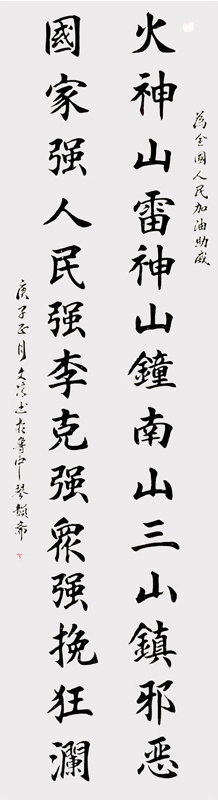 為全國人民加油助威
火神山雷神山鐘南山三山鎮邪恶
國家强人民强李克强衆强挽狂瀾
庚子正月文 於魯中琴韻斋